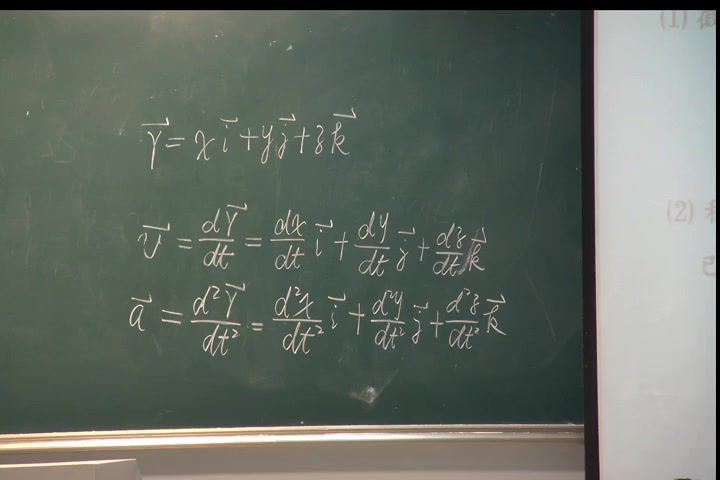 r⃗ = x i⃗ + y j⃗ + z k⃗
v⃗ = dr⃗/dt = dx/dt i⃗ + dy/dt j⃗ + dz/dt k⃗
a⃗ = d²r⃗/dt² = d²x/dt² i⃗ + d²y/dt² j⃗ + d²z/dt² k⃗
(1)
(2)